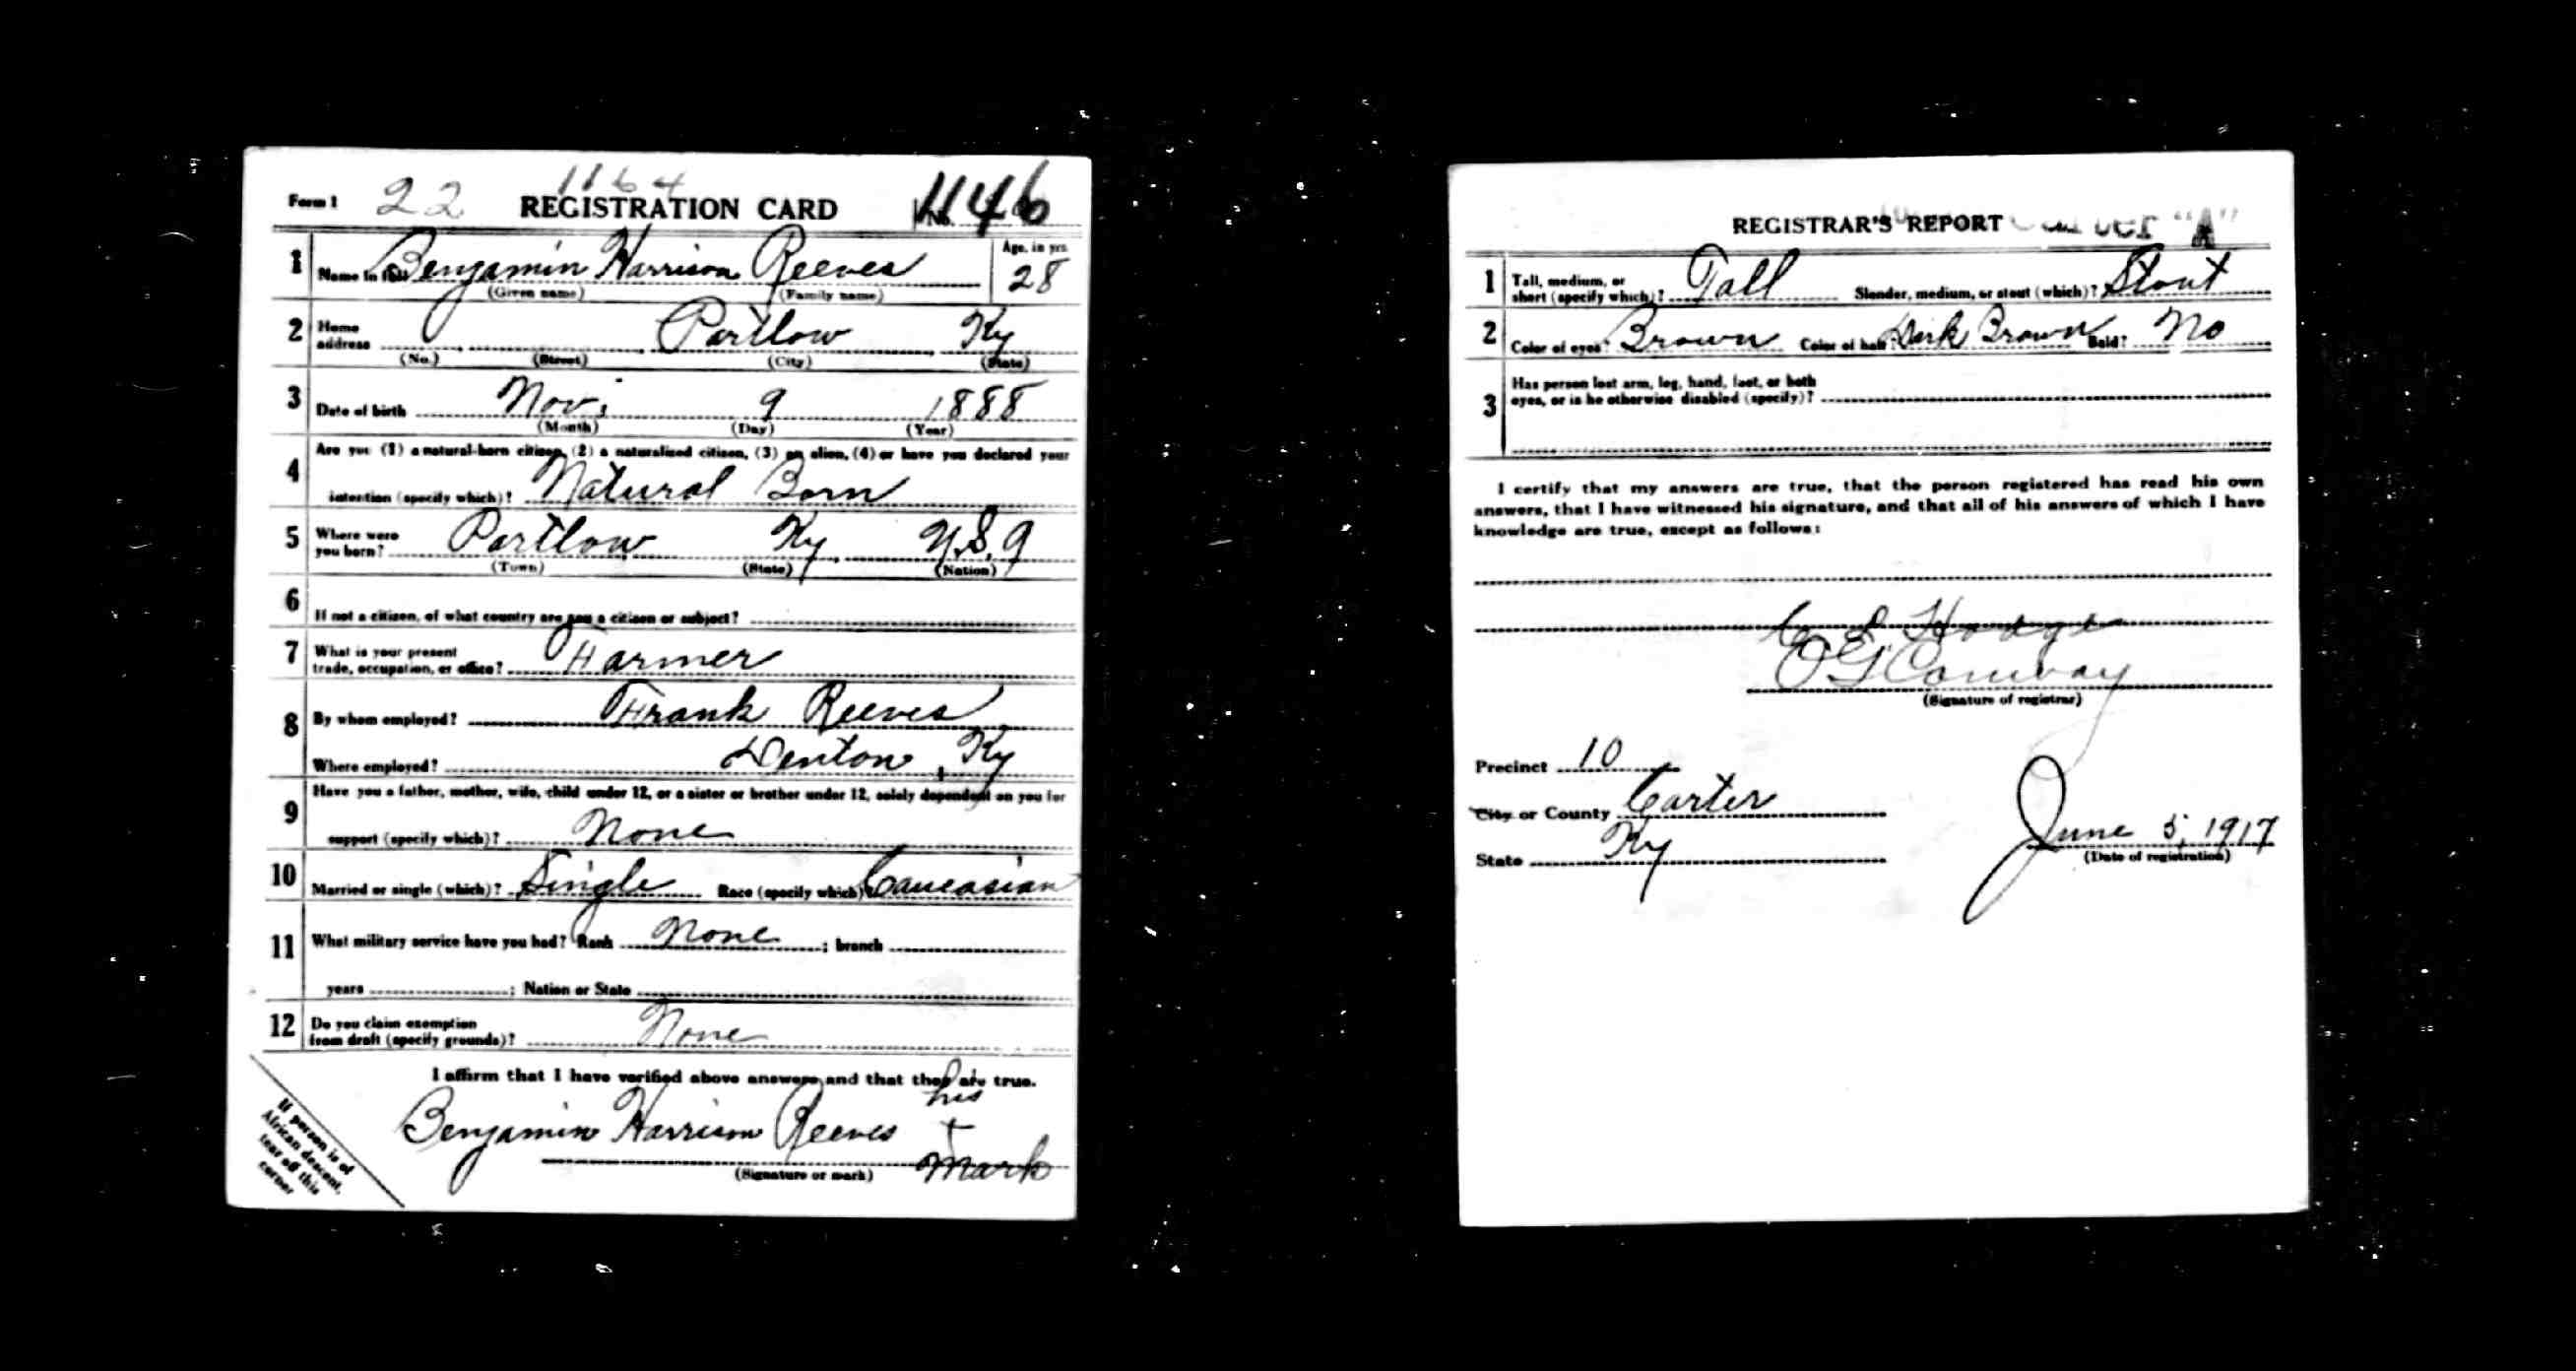 1164
Form 1 22 REGISTRATION CARD No. 1146
1 Name in full Benjamin Harrison Reeves Age, in yrs. 28
(Given name) (Family name)
2 Home address Partlow Ky
(No.) (Street) (City) (State)
3 Date of birth Nov. 9 1888
(Month) (Day) (Year)
4 Are you (1) a natural-born citizen, (2) a naturalized citizen, (3) an alien, (4) or have you declared your
intention (specify which)? Natural Born
5 Where were you born? Partlow Ky U.S.A
(Town) (State) (Nation)
6 If not a citizen, of what country are you a citizen or subject?
7 What is your present trade, occupation, or office? Farmer
8 By whom employed? Frank Reeves
Where employed? Denton, Ky
9 Have you a father, mother, wife, child under 12, or a sister or brother under 12, solely dependent on you for
support (specify which)? None
10 Married or single (which)? Single Race (specify which)? Caucasian
11 What military service have you had? Rank None ; branch
years ; Nation or State
12 Do you claim exemption from draft (specify grounds)? None
I affirm that I have verified above answers and that they are true.
his
Benjamin Harrison Reeves +
(Signature or mark) mark
If person is of
African descent,
tear off this
corner
REGISTRAR'S REPORT "A"
1 Tall, medium, or short (specify which)? Tall Slender, medium, or stout (which)? Stout
2 Color of eyes? Brown Color of hair? Dark Brown Bald? No
3 Has person lost arm, leg, hand, foot, or both
eyes, or is he otherwise disabled (specify)?
I certify that my answers are true, that the person registered has read his own
answers, that I have witnessed his signature, and that all of his answers of which I have
knowledge are true, except as follows:
Hodge
Conway
(Signature of registrar)
Precinct 10
City or County Carter
State Ky
June 5, 1917
(Date of registration)